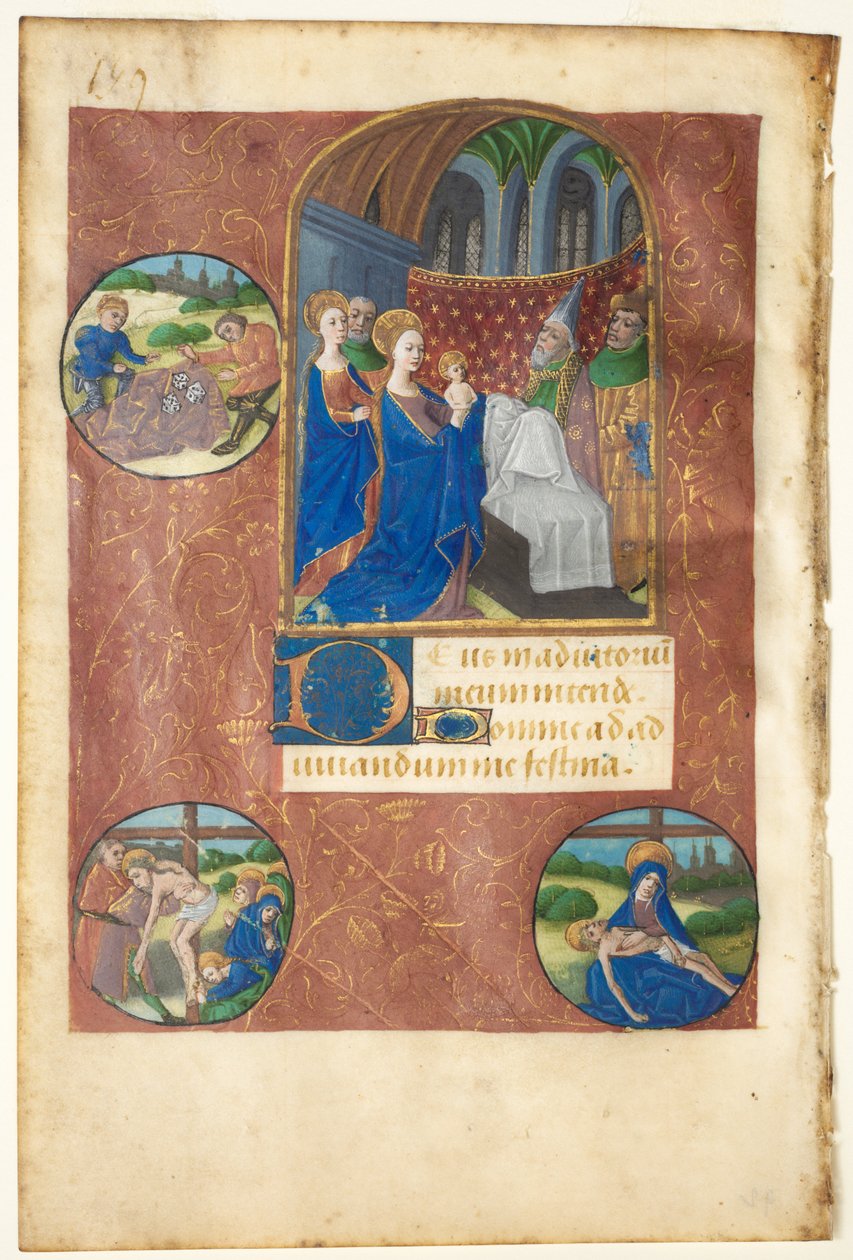 149
Deus in adiutoriū
meum intende.
Domine ad ad
iuuandum me festina.